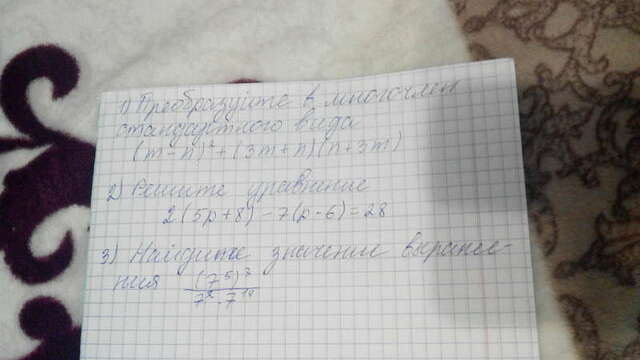 1) Преобразуйте в многочлен
стандартного вида
(m-n)² + (3m+n)(n+3m)
2) Решите уравнение
2(5p+8)-7(p-6)=28
3) Найдите значение выраже-
ния